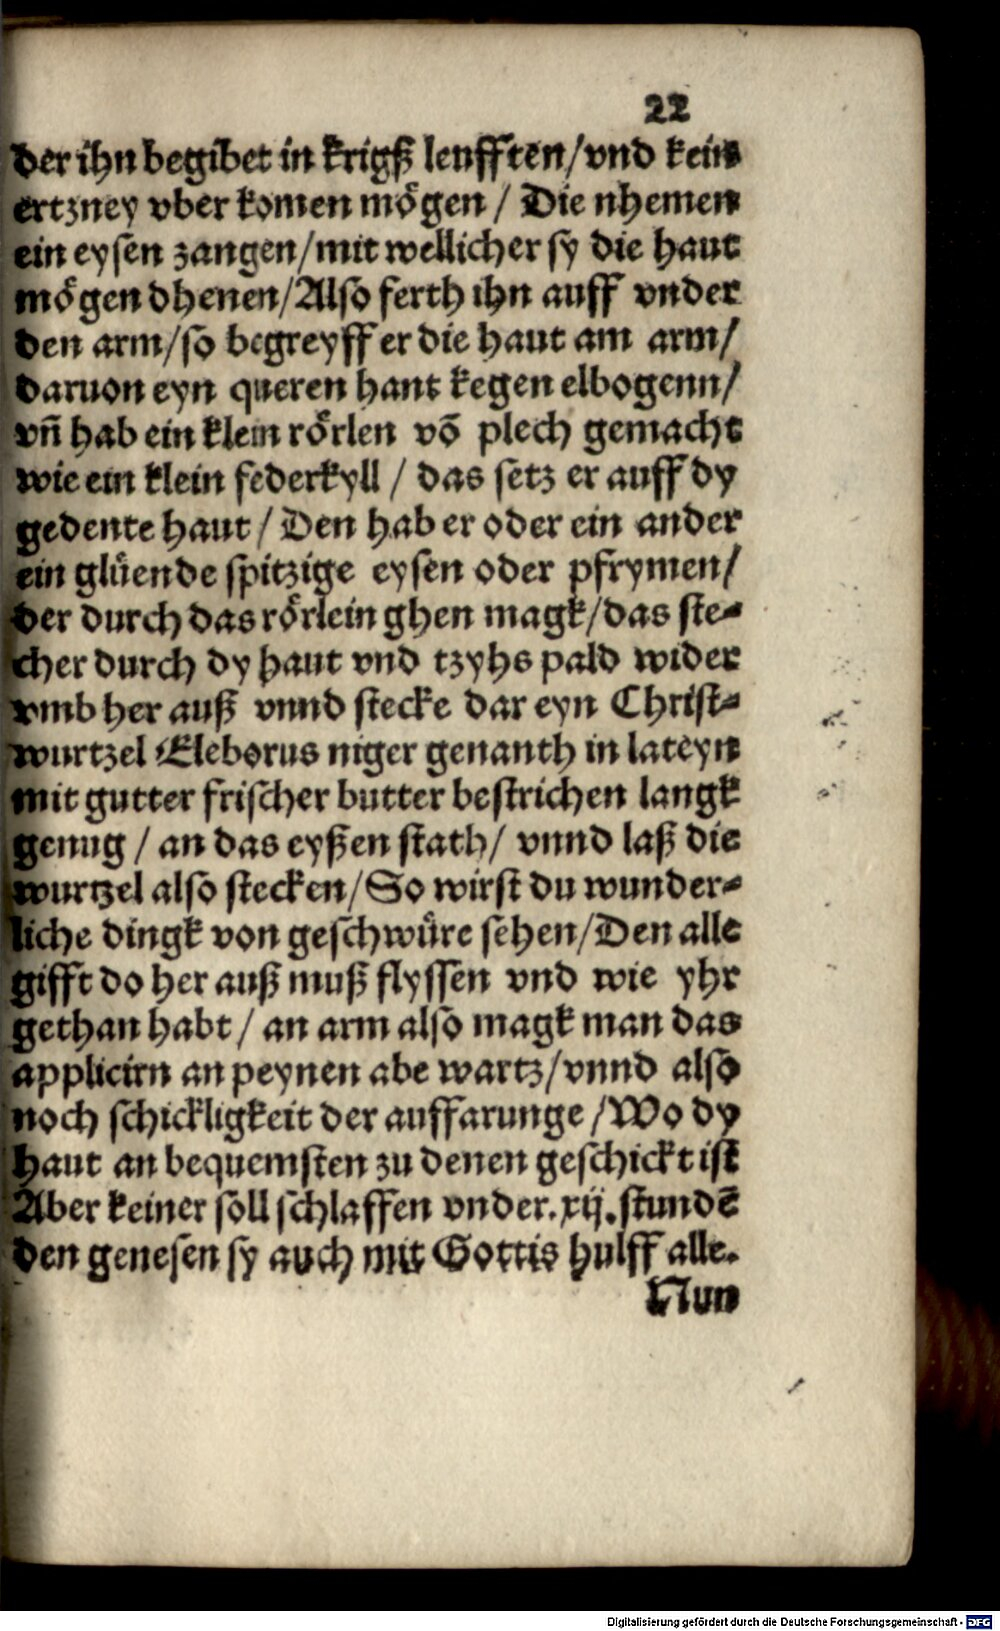 22
der ihn begibet in krigß leufften/vnd kein
ertzney vber komen mögen / Die nhemen
ein eysen zangen/mit wellicher sy die haut
mögen dhenen/Also ferth ihn auff vnder
den arm/so begreyff er die haut am arm/
daruon eyn queren hant kegen elbogenn/
vn̄ hab ein klein rörlen vō plech gemacht
wie ein klein federkyll / das setz er auff dy
gedente haut / Den hab er oder ein ander
ein glüende spitzige eysen oder pfrymen/
der durch das rörlein ghen magk/das ste-
cher durch dy haut vnd tzyhs pald wider
vmb her auß vnnd stecke dar eyn Christ-
wurtzel Eleborus niger genanth in lateyn
mit gutter frischer butter bestrichen langk
genug / an das eyßen stath/ vnnd laß die
wurtzel also stecken/So wirst du wunder-
liche dingk von geschwüre sehen/Den alle
gifft do her auß muß flyssen vnd wie yhr
gethan habt / an arm also magk man das
applicirn an peynen abe wartz/vnnd also
noch schickligkeit der auffarunge /Wo dy
haut an bequemsten zu denen geschickt ist
Aber keiner soll schlaffen vnder.xij.stundē
den genesen sy auch mit Gottis hulff alle.
Nun
Digitalisierung gefördert durch die Deutsche Forschungsgemeinschaft - DFG